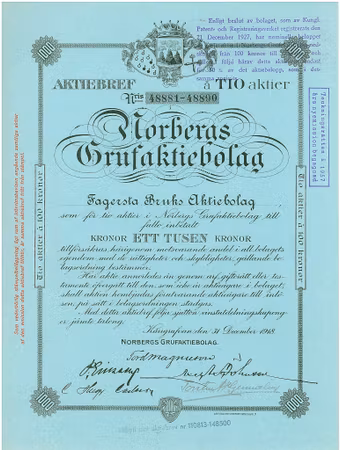 Enligt beslut av bolaget, som av Kungl.
Patent- och Registreringsverket registrerats den
21 December 1927, har nominella beloppet
från 100 kronor till
av det aktiebelopp, som i
AKTIEBREF
å TIO aktier
Nris 48881-48890
Norbergs
Grufaktiebolag
Fagersta Bruks Aktiebolag
som för tio aktier i Norbergs Grufaktiebolag till-
fullo inbetalt
KRONOR ETT TUSEN KRONOR
tillförsäkras härigenom motsvarande andel i all bolagets
egendom med de rättigheter och skyldigheter, gällande bo-
lagsordning bestämmer.
Har aktie annorledes än genom arf, giftorätt eller tes-
tamente öfvergått till den som icke är aktieägare i bolaget,
skall aktien hembjudas förutvarande aktieägare till inlö-
sen, på sätt i bolagsordningen stadgas.
Med detta aktiebref följa sjutton vinstutdelningskupong-
er jämte talong.
Kärrgrufvan den 31 December 1918.
NORBERGS GRUFAKTIEBOLAG.
Tio aktier à 100 kronor
Tio aktier à 100 kronor
1000
1000
1000
1000